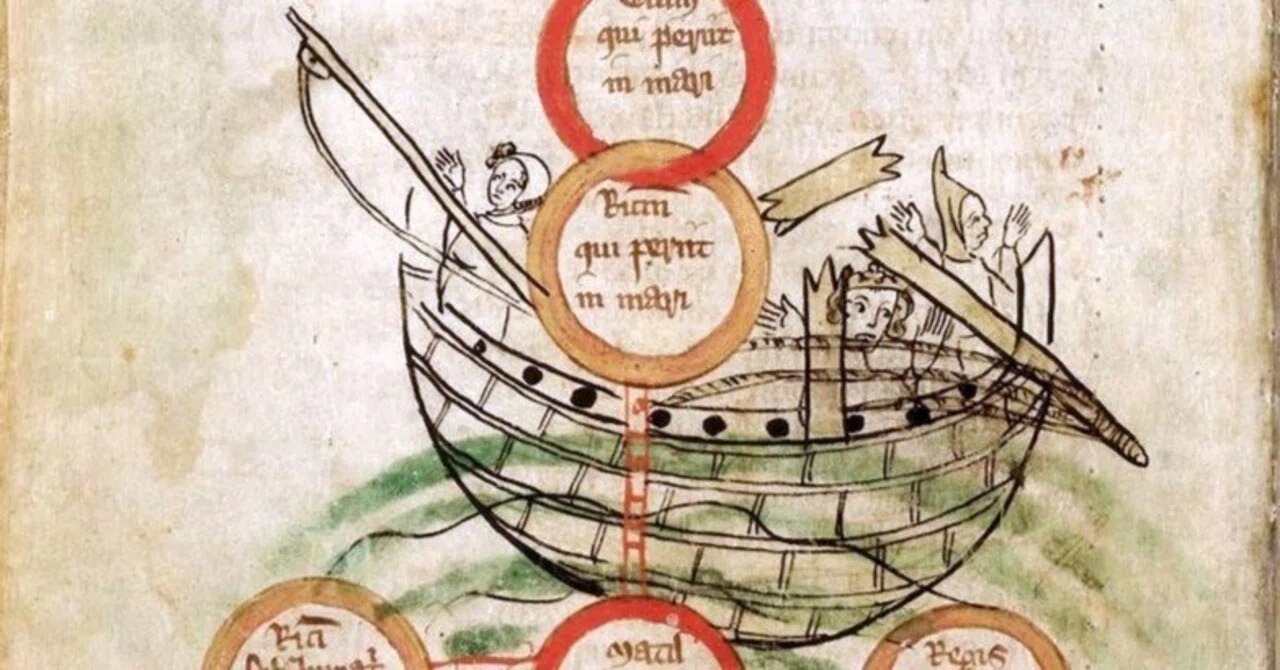 qui periit
in mari
Ricũ
qui periit
in mari
Rici
Matil
Regis